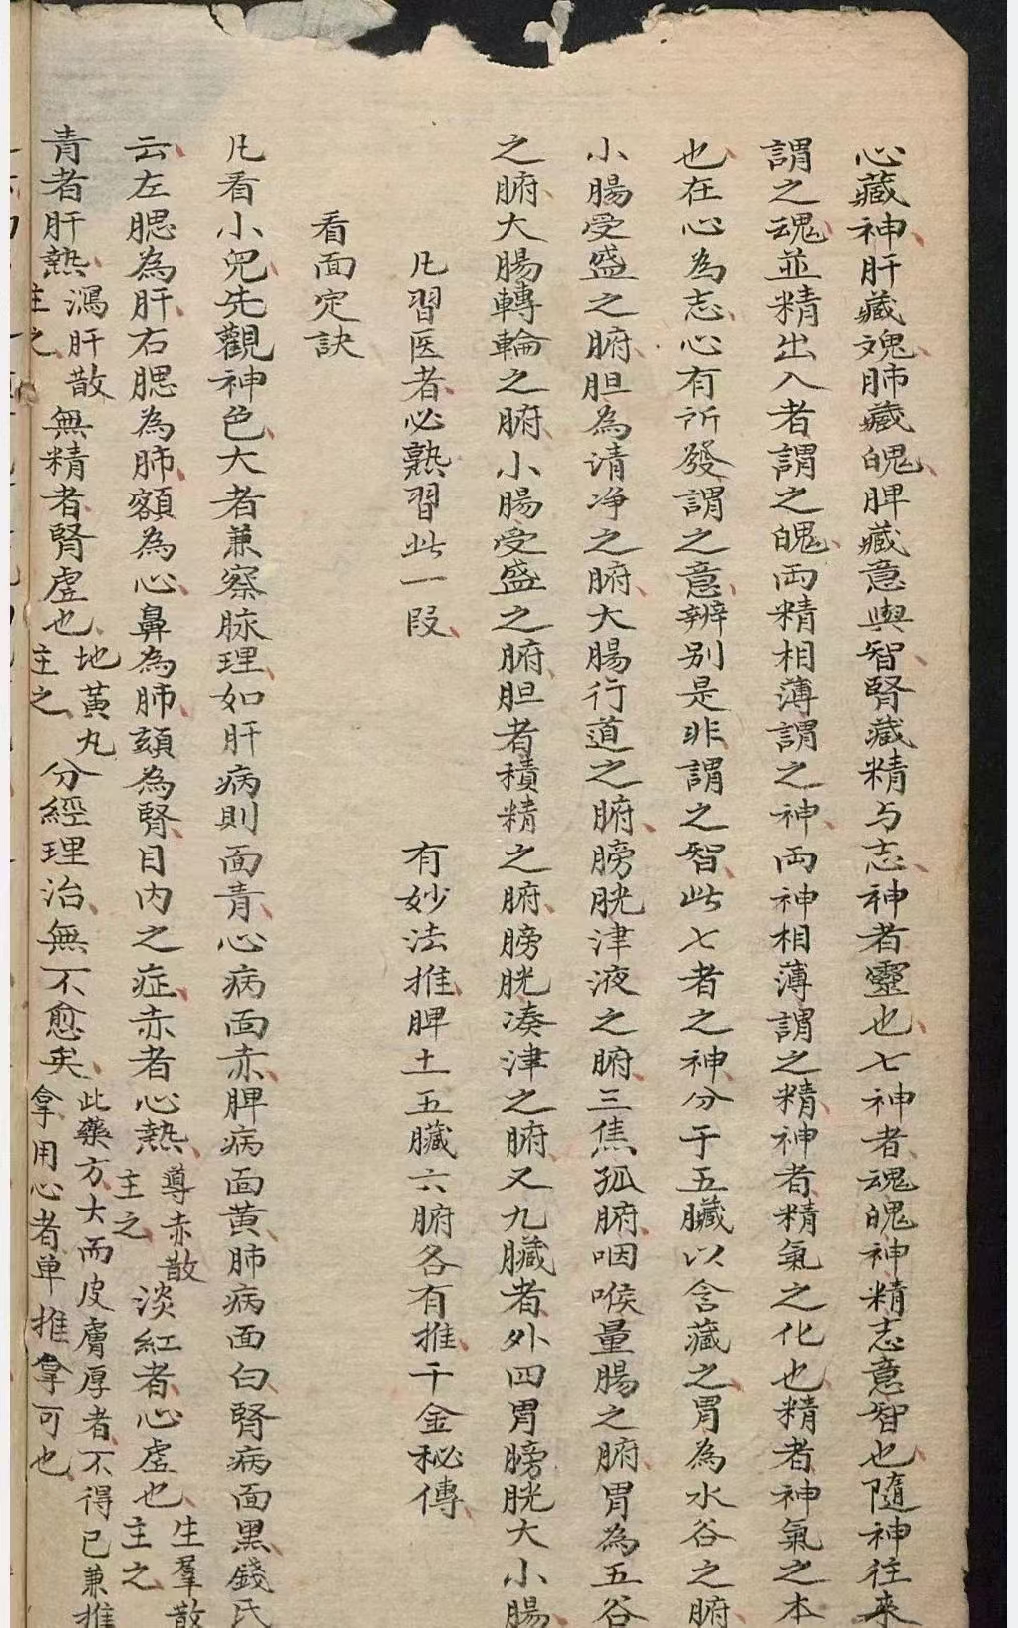 心藏神肝藏魂肺藏魄脾藏意與智腎藏精与志神者靈也七神者魂魄神精志意智也隨神往来
謂之魂並精出入者謂之魄両精相薄謂之神両神相薄謂之精神者精氣之化也精者神氣之本
也在心為志心有所發謂之意辨别是非謂之智此七者之神分于五臟以含藏之胃為水谷之腑
小腸受盛之腑胆為清净之腑大腸行道之腑膀胱津液之腑三焦孤腑咽喉量腸之腑胃為五谷
之腑大腸轉輪之腑小腸受盛之腑胆者積精之腑膀胱凑津之腑又九臟者外四胃膀胱大小腸
凡習医者必熟習此一段 有妙法推脾土五臟六腑各有推千金秘傳
看面定訣
凡看小兒先觀神色大者兼察脉理如肝病則面青心病面赤脾病面黄肺病面白腎病面黑錢氏
云左腮為肝右腮為肺額為心鼻為肺頦為腎目内之症赤者心熱導赤散主之淡紅者心虚也生羣散主之
青者肝熱瀉肝散主之無精者腎虚也地黄丸主之分經理治無不愈矣此藥方大而皮膚厚者不得已兼推拿用心者单推拿可也